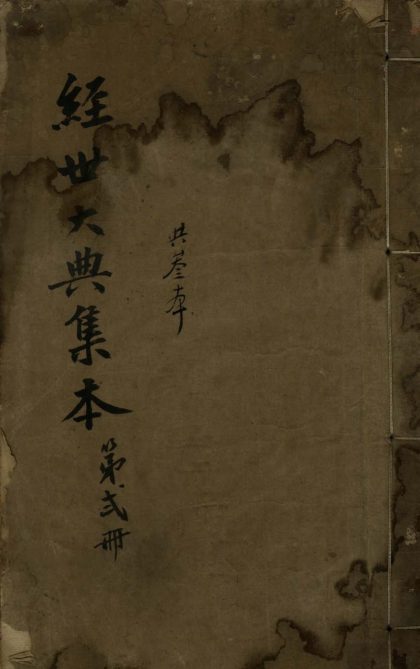 經世大典集本
第弍冊
共叁本